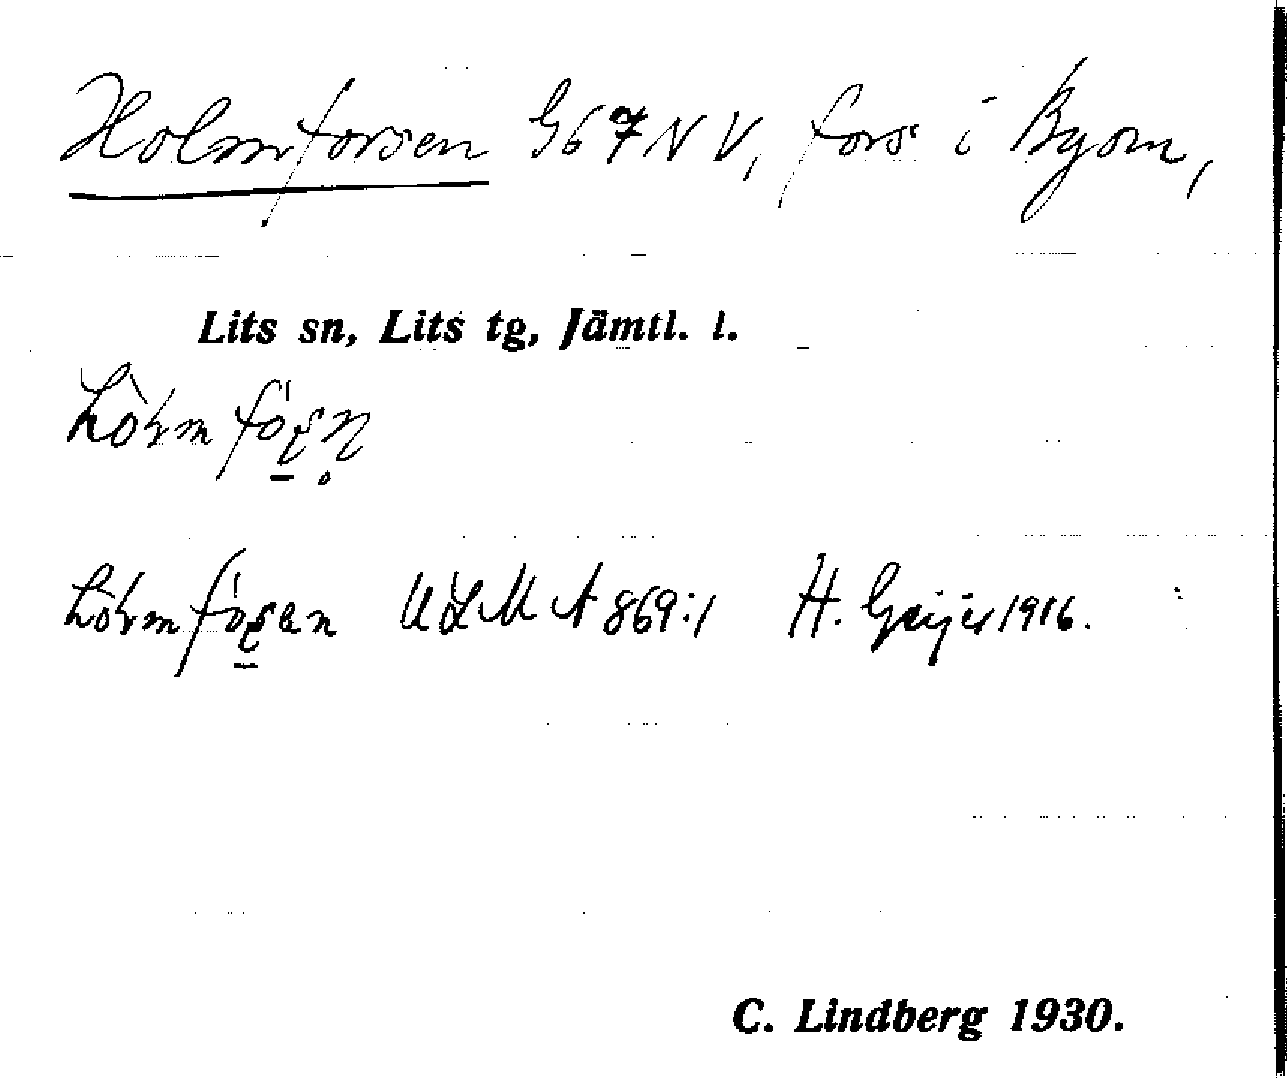 Holmforsen G67NV, fors i Byom,
Lits sn, Lits tg, Jämtl. l.
ULMA 869:1 H. Geijer 1916.
C. Lindberg 1930.